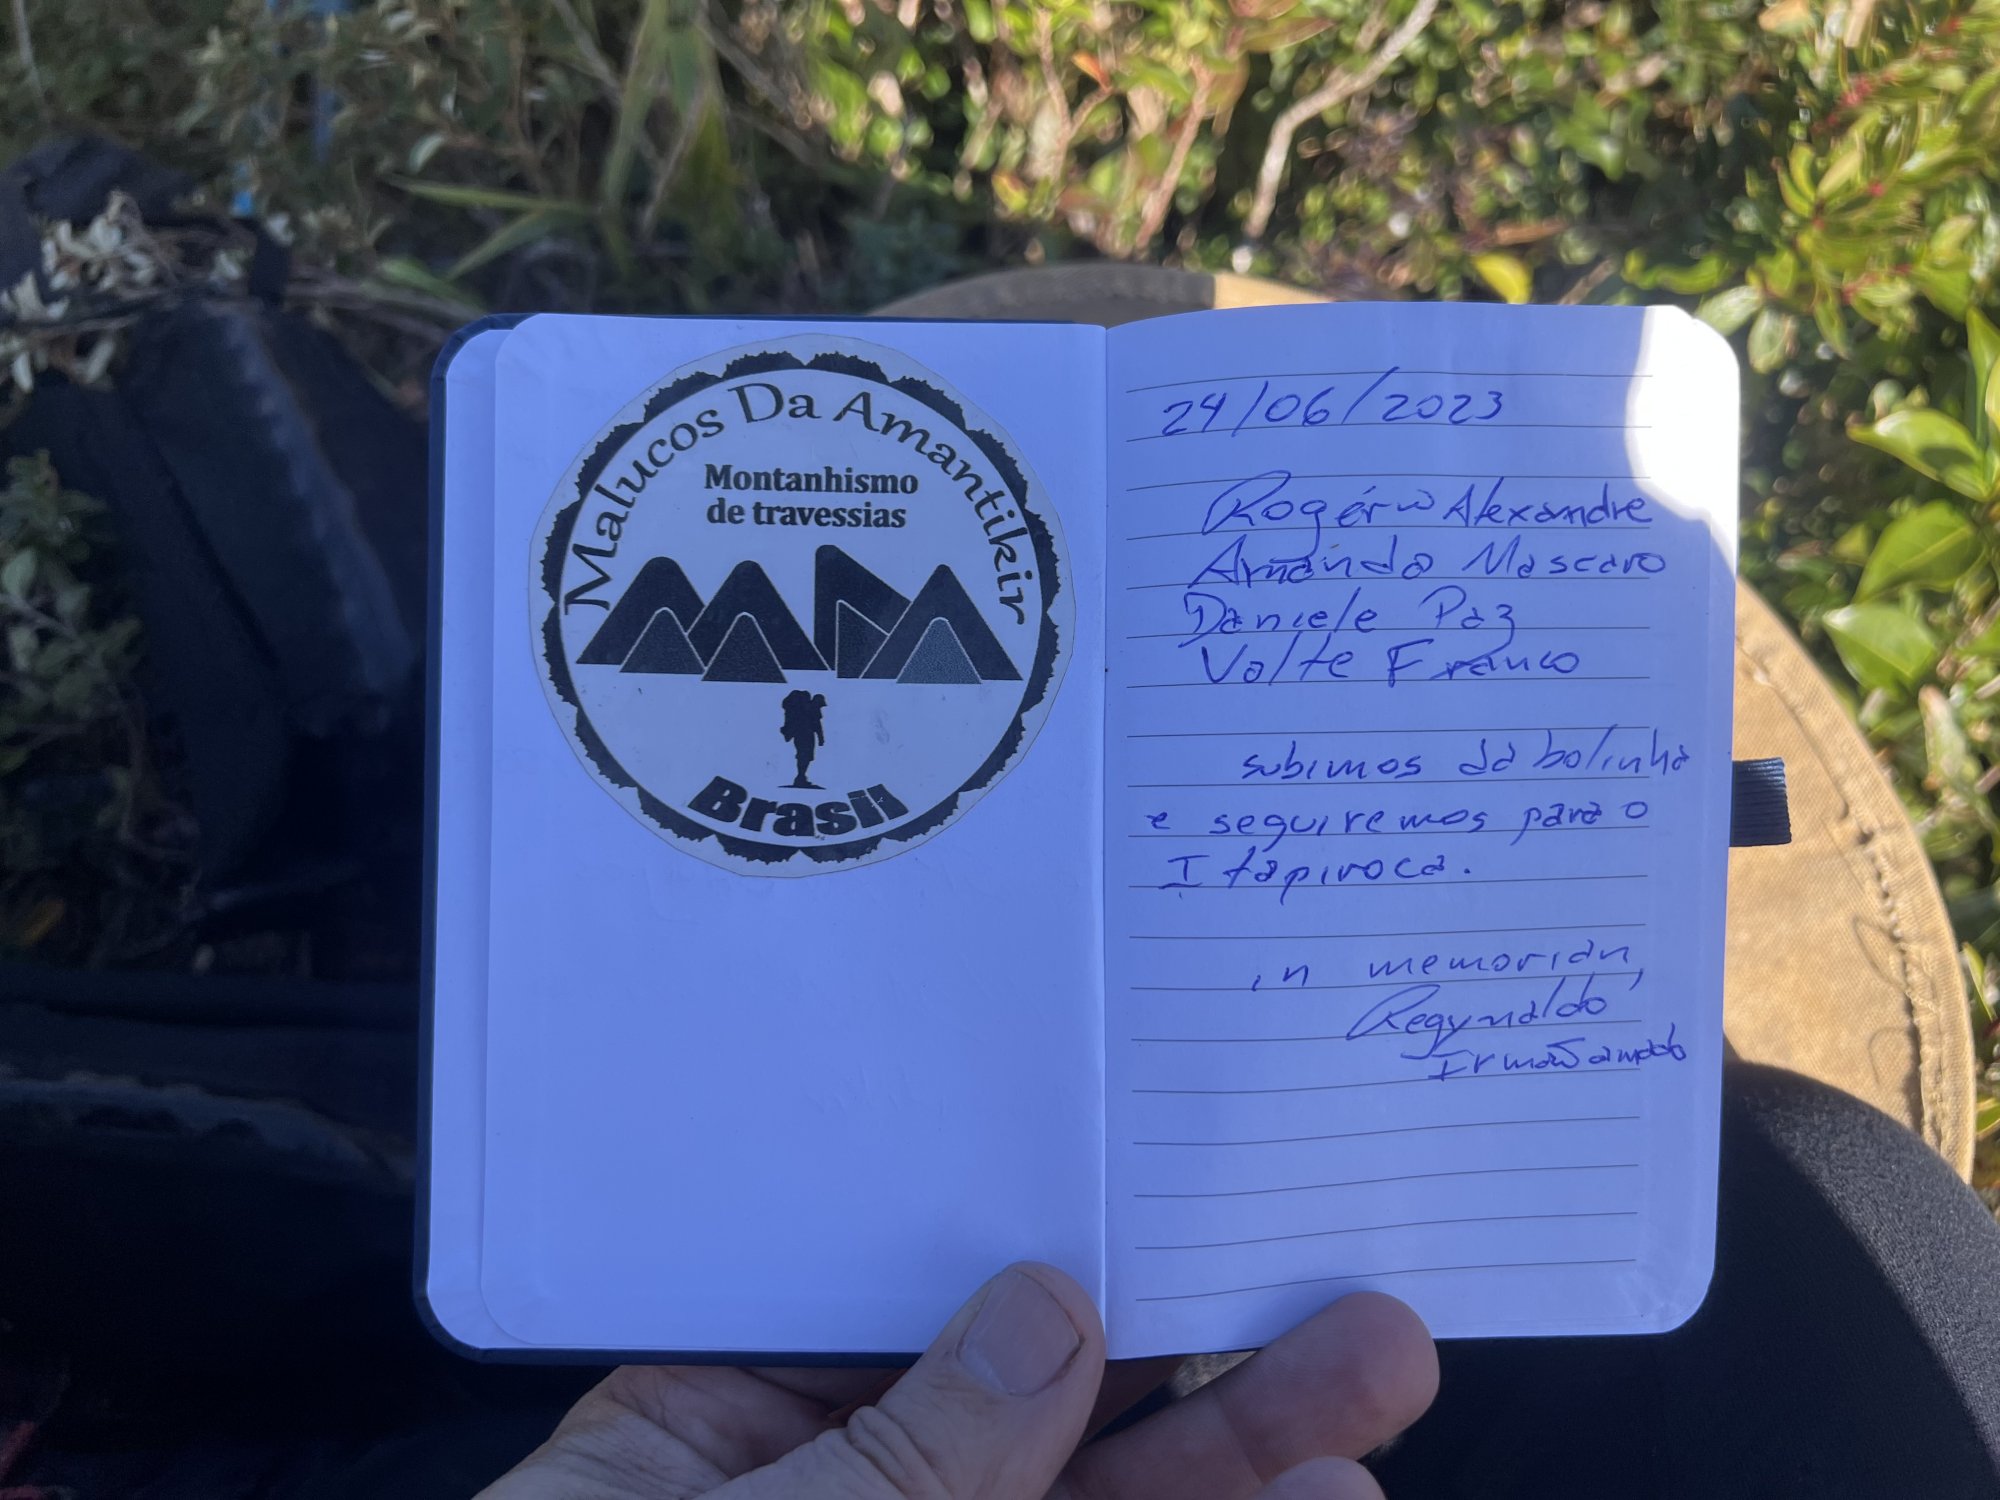 Malucos Da Amantikir
Montanhismo
de travessias
Brasil
24/06/2023
Rogério Alexandre
Armando Mascaro
Daniele Paz
Valte Franco
subimos da bolinha
e seguiremos para o
Itapiroca.
in memorian,
Regynaldo